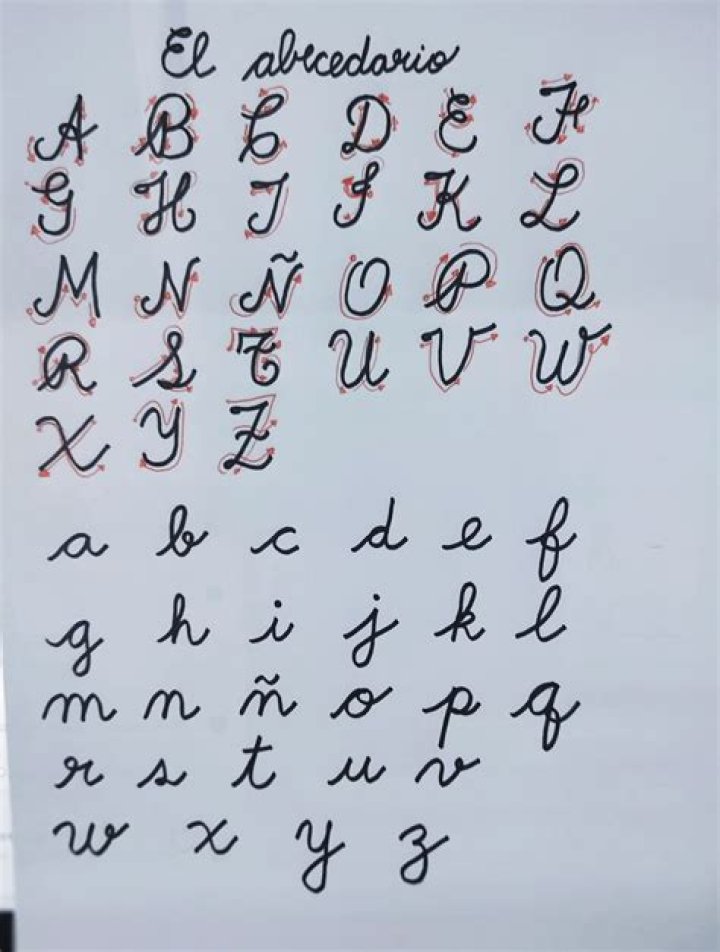 El abecedario
A B C D E F
G H I J K L
M N Ñ O P Q
R S T U V W
X Y Z
a b c d e f
g h i j k l
m n ñ o p q
r s t u v
w x y z